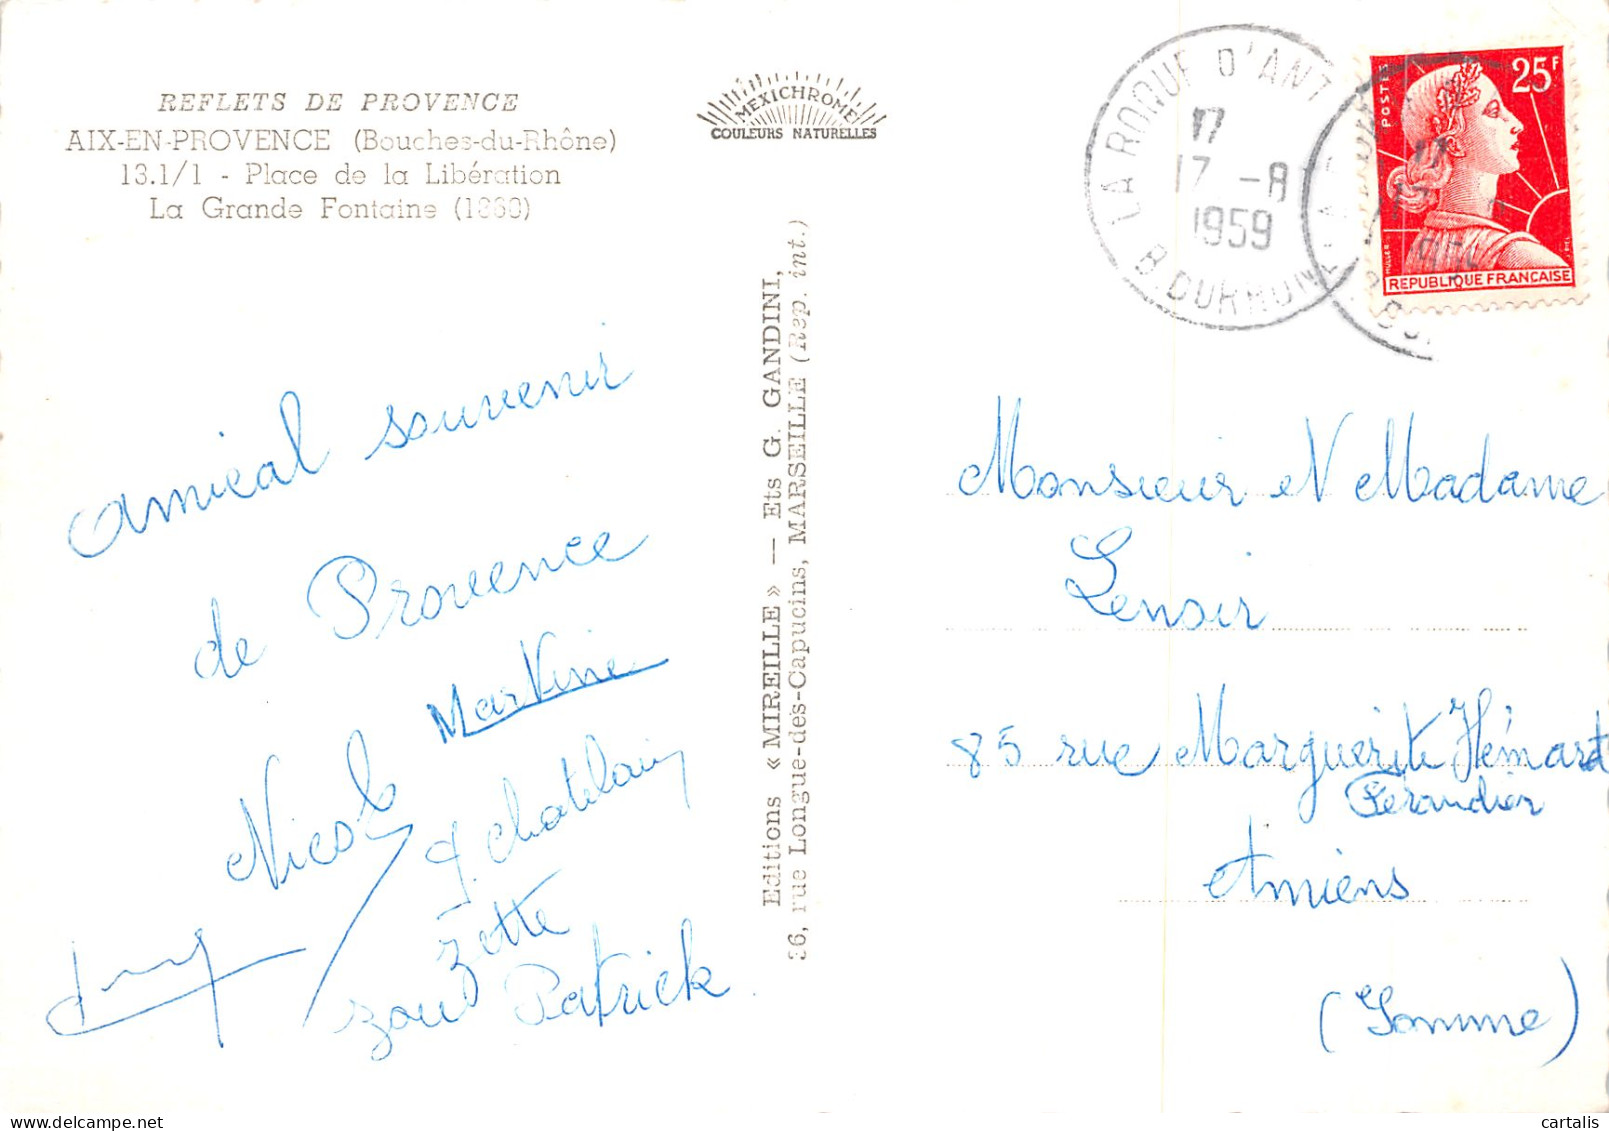 REFLETS DE PROVENCE
AIX-EN-PROVENCE (Bouches-du-Rhône)
13.1/1 - Place de la Libération
La Grande Fontaine (1860)
MEXICHROME
COULEURS NATURELLES
LA ROQUE D'ANT
17
17 -8
1959
B. DU RHONE
POSTES
25F
MULLER
REPUBLIQUE FRANÇAISE
Amical souvenir
de Provence
Martine
Nicole
chatelain
zette
zou Patrick
Editions « MIREILLE » -- Ets G. GANDINI,
36, rue Longue-des-Capucins, MARSEILLE (Rep. int.)
Monsieur et Madame
Lenoir
85 rue Marguerite Hémart
Ferandier
Amiens
(Somme)
cartalis